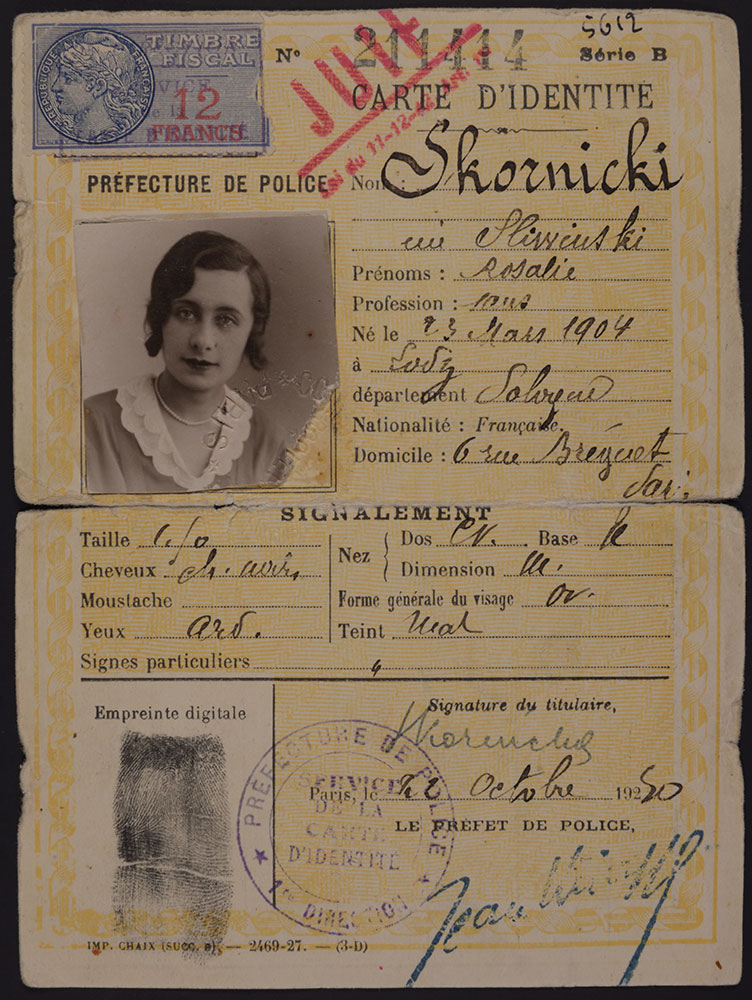 5612
TIMBRE
FISCAL
12
FRANCS
REPUBLIQUE FRANÇAISE
Nº 211414 Série B
JUIVE
Loi du 11-12-42
CARTE D'IDENTITÉ
PRÉFECTURE DE POLICE
Nom : Skornicki
née
Prénoms : Rosalie
Profession : sans
Né le 23 Mars 1904
à Lodz
département Pologne
Nationalité : Française.
Domicile : 6 rue Bréguet
Paris
SIGNALEMENT
Taille
Cheveux ch. noirs
Moustache
Yeux ard.
Signes particuliers
Nez
Dos Base
Dimension m.
Forme générale du visage ov.
Teint Mat
Empreinte digitale
Signature du titulaire,
Paris, le Octobre 19
LE PRÉFET DE POLICE,
PRÉFECTURE DE POLICE
SERVICE
DE LA
CARTE
D'IDENTITÉ
1re DIRECTION
IMP. CHAIX (SUCC. B). — 2469-27. — (3-D)